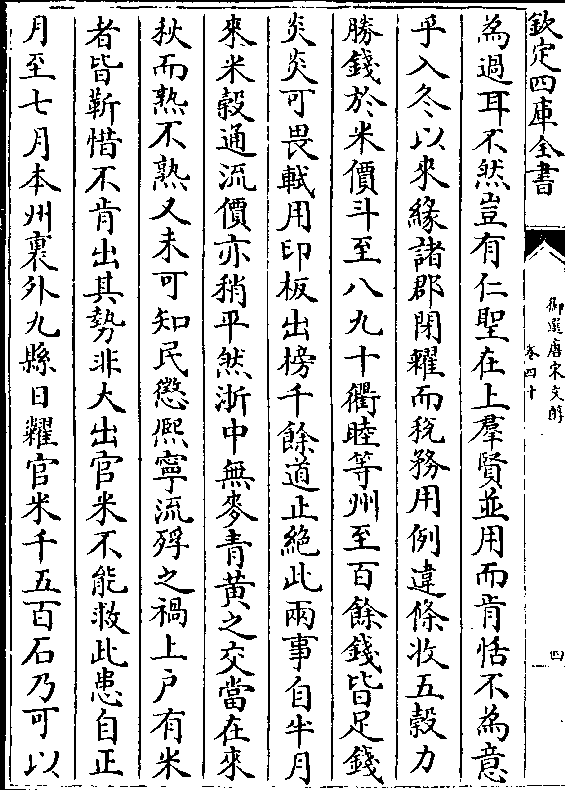 欽定四庫全書
御選唐宋文醇
卷四十
四
為過耳不然豈有仁聖在上羣賢並用而肯恬不為意
乎入冬以來緣諸郡閉糴而稅務用例違條收五穀力
勝錢於米價斗至八九十衢睦等州至百餘錢皆足錢
炎炎可畏軾用印板出榜千餘道止絶此兩事自半月
來米穀通流價亦稍平然浙中無麥青黃之交當在來
秋而熟不熟又未可知民懲熈寧流殍之禍上户有米
者皆靳惜不肯出其勢非大出官米不能救此患自正
月至七月本州裏外九縣日糶官米千五百石乃可以